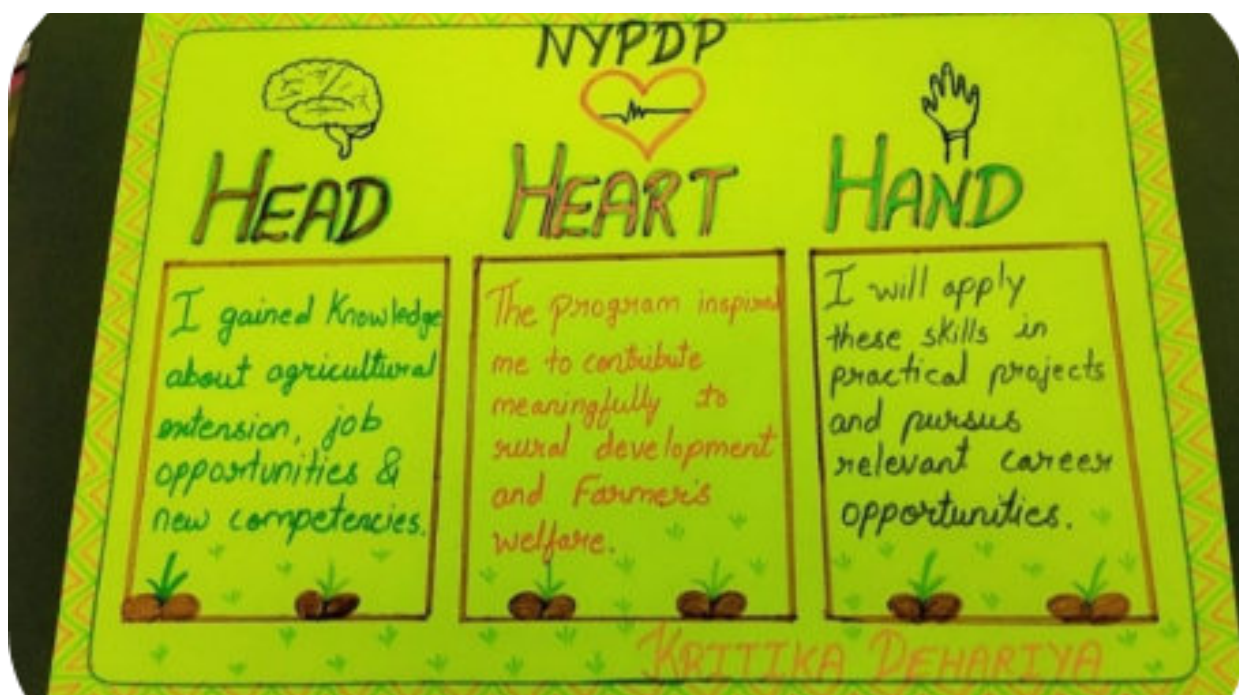 NYPDP
HEAD
I gained Knowledge
about agricultural
extension, job
opportunities &
new competencies.
HEART
The program inspired
me to contibute
meaningfully to
rural development
and Farmer's
welfare.
HAND
I will apply
these skills in
practical projects
and pursus
relevant career
opportunities.
KRITIKA DEHARIYA